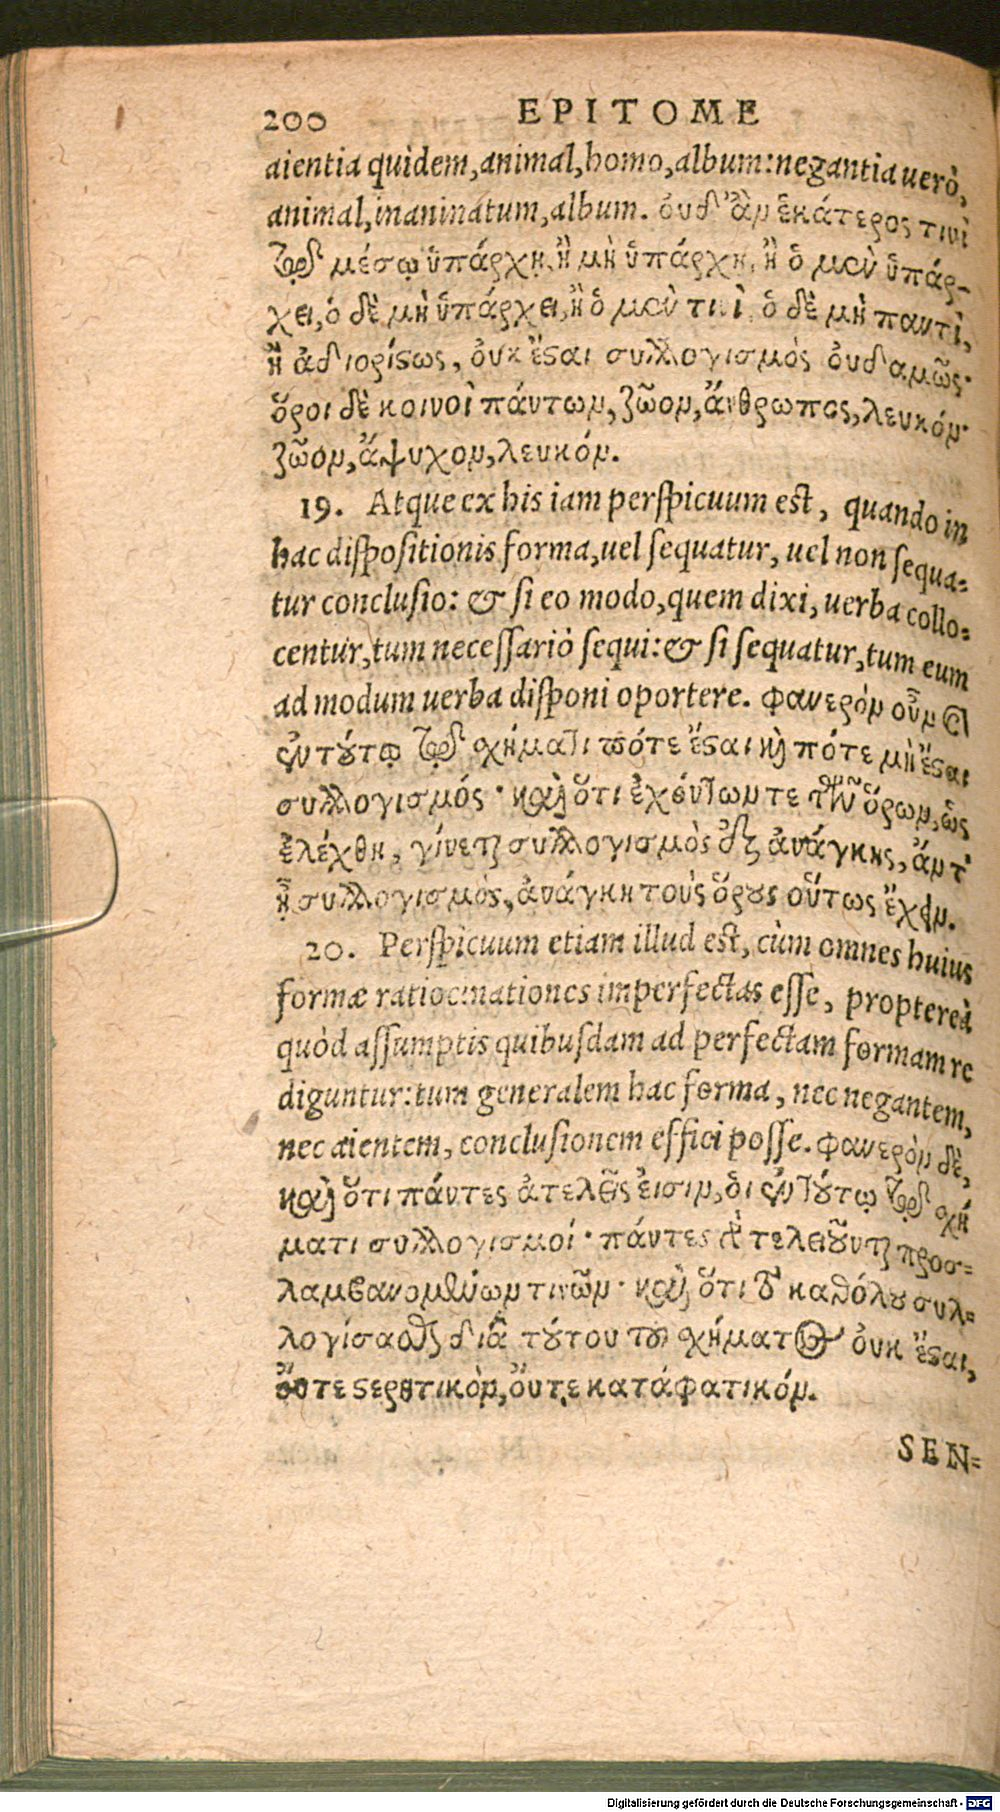 200 EPITOME
aientia quidem, animal, homo, album: negantia uerò,
animal, inanimatum, album. οὐδ' ἂν ἑκάτερος τινὶ
τῷ μέσῳ ὑπάρχῃ, ἢ μὴ ὑπάρχῃ, ἢ ὁ μὲν ὑπάρ-
χει, ὁ δὲ μὴ ὑπάρχει, ἢ ὁ μὲν τινὶ, ὁ δὲ μὴ παντὶ,
ἢ ἀδιορίστως, οὐκ ἔσται συλλογισμὸς οὐδαμῶς·
ὅροι δὲ κοινοὶ πάντων, ζῶον, ἄνθρωπος, λευκόν·
ζῶον, ἄψυχον, λευκόν.
19. Atque ex his iam perspicuum est, quando in
hac dispositionis forma, uel sequatur, uel non sequa=
tur conclusio: & si eo modo, quem dixi, uerba collo=
centur, tum necessariò sequi: & si sequatur, tum eum
ad modum uerba disponi oportere. φανερὸν οὖν ἐ
ἐν τούτῳ τῷ σχήματι πότε ἔσται καὶ πότε μὴ ἔσται
συλλογισμός· καὶ ὅτι ἐχόντων τε τῶν ὅρων, ὡς
ἐλέχθη, γίνεται συλλογισμὸς ἐξ ἀνάγκης, ἄν τ'
ᾖ συλλογισμὸς, ἀνάγκη τοὺς ὅρους οὕτως ἔχειν.
20. Perspicuum etiam illud est, cùm omnes huius
formæ ratiocinationes imperfectas esse, proptereà
quòd assumptis quibusdam ad perfectam formam re
diguntur: tum generalem hac forma, nec negantem,
nec aientem, conclusionem effici posse. φανερὸν δὲ,
καὶ ὅτι πάντες ἀτελεῖς εἰσιν, οἱ ἐν τούτῳ τῷ σχή
ματι συλλογισμοί· πάντες γὰρ τελειοῦνται προσ=
λαμβανομένων τινῶν· καὶ ὅτι τὸ καθόλου συλ=
λογίσασθαι διὰ τούτου τοῦ σχήματος οὐκ ἔσται,
οὔτε στερητικὸν, οὔτε κατάφατικόν.
SEN=
Digitalisierung gefördert durch die Deutsche Forschungsgemeinschaft - DFG